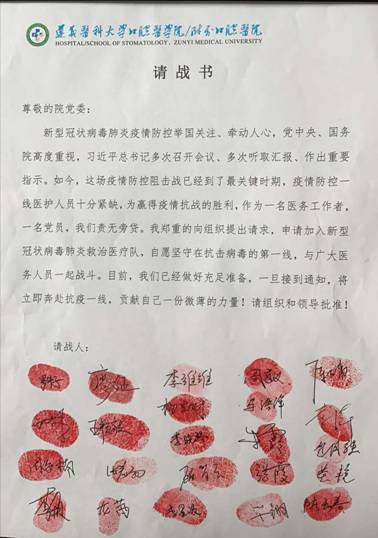 遵义医科大学口腔医学院/附属口腔医院
HOSPITAL/SCHOOL OF STOMATOLOGY, ZUNYI MEDICAL UNIVERSITY
请战书
尊敬的院党委：
新型冠状病毒肺炎疫情防控举国关注、牵动人心，党中央、国务
院高度重视，习近平总书记多次召开会议、多次听取汇报、作出重要
指示。如今，这场疫情防控阻击战已经到了最关键时期，疫情防控一
线医护人员十分紧缺，为赢得疫情抗战的胜利，作为一名医务工作者，
一名党员，我们责无旁贷。我郑重的向组织提出请求，申请加入新型
冠状病毒肺炎救治医疗队，自愿坚守在抗击病毒的第一线，与广大医
务人员一起战斗。目前，我们已经做好充足准备，一旦接到通知，将
立即奔赴抗疫一线，贡献自己一份微薄的力量！请组织和领导批准！
请战人：
李维维